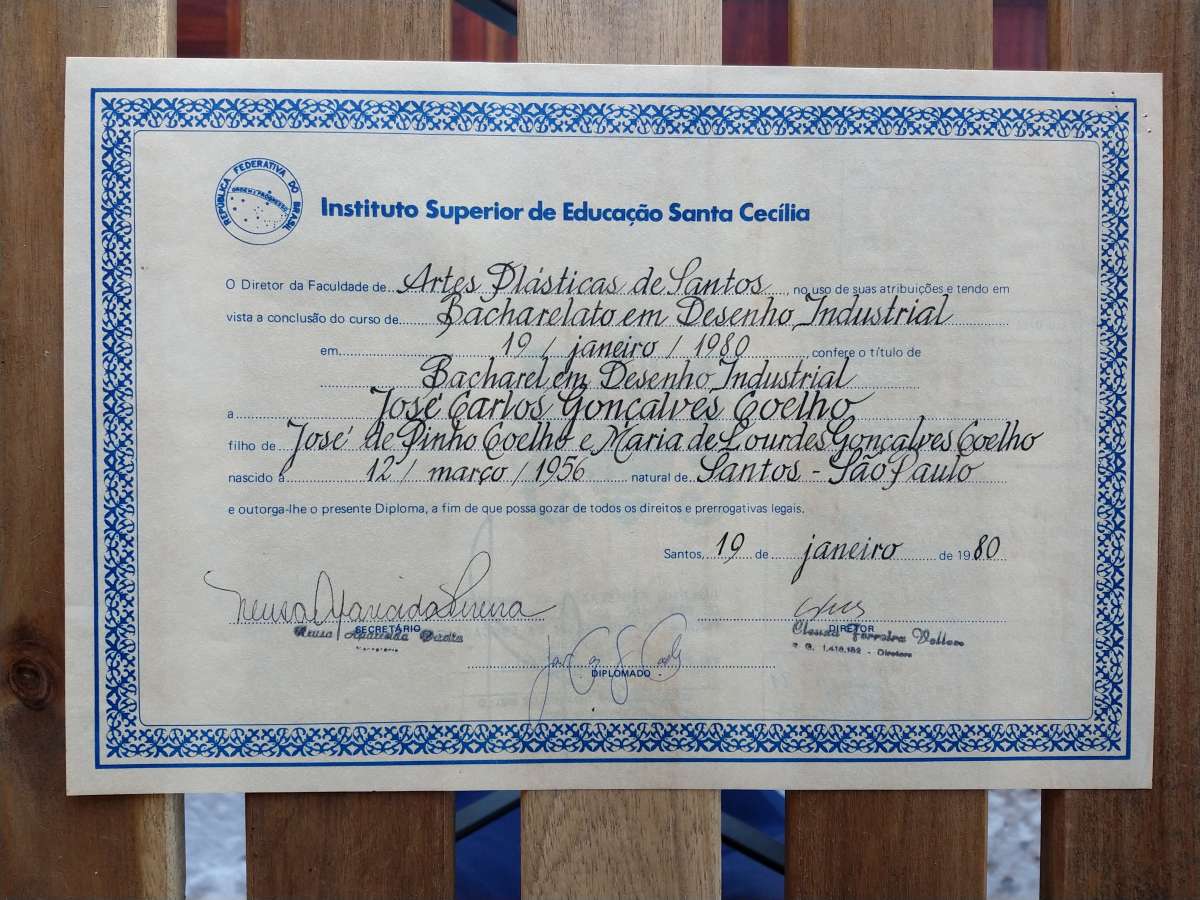 REPÚBLICA FEDERATIVA DO BRASIL
ORDEM E PROGRESSO
Instituto Superior de Educação Santa Cecília
O Diretor da Faculdade de Artes Plásticas de Santos, no uso de suas atribuições e tendo em
vista a conclusão do curso de Bacharelato em Desenho Industrial
em 19 / janeiro / 1980, confere o título de
Bacharel em Desenho Industrial
a José Carlos Gonçalves Coelho
filho de José de Pinho Coelho e Maria de Lourdes Gonçalves Coelho
nascido a 12 / março / 1956 natural de Santos - São Paulo
e outorga-lhe o presente Diploma, a fim de que possa gozar de todos os direitos e prerrogativas legais.
Santos, 19 de janeiro de 1980
Neusa Aparecida
SECRETÁRIO
Neusa Aparecida
DIRETOR
Ferreira
R. G. 1.418.182 - Diretora
DIPLOMADO